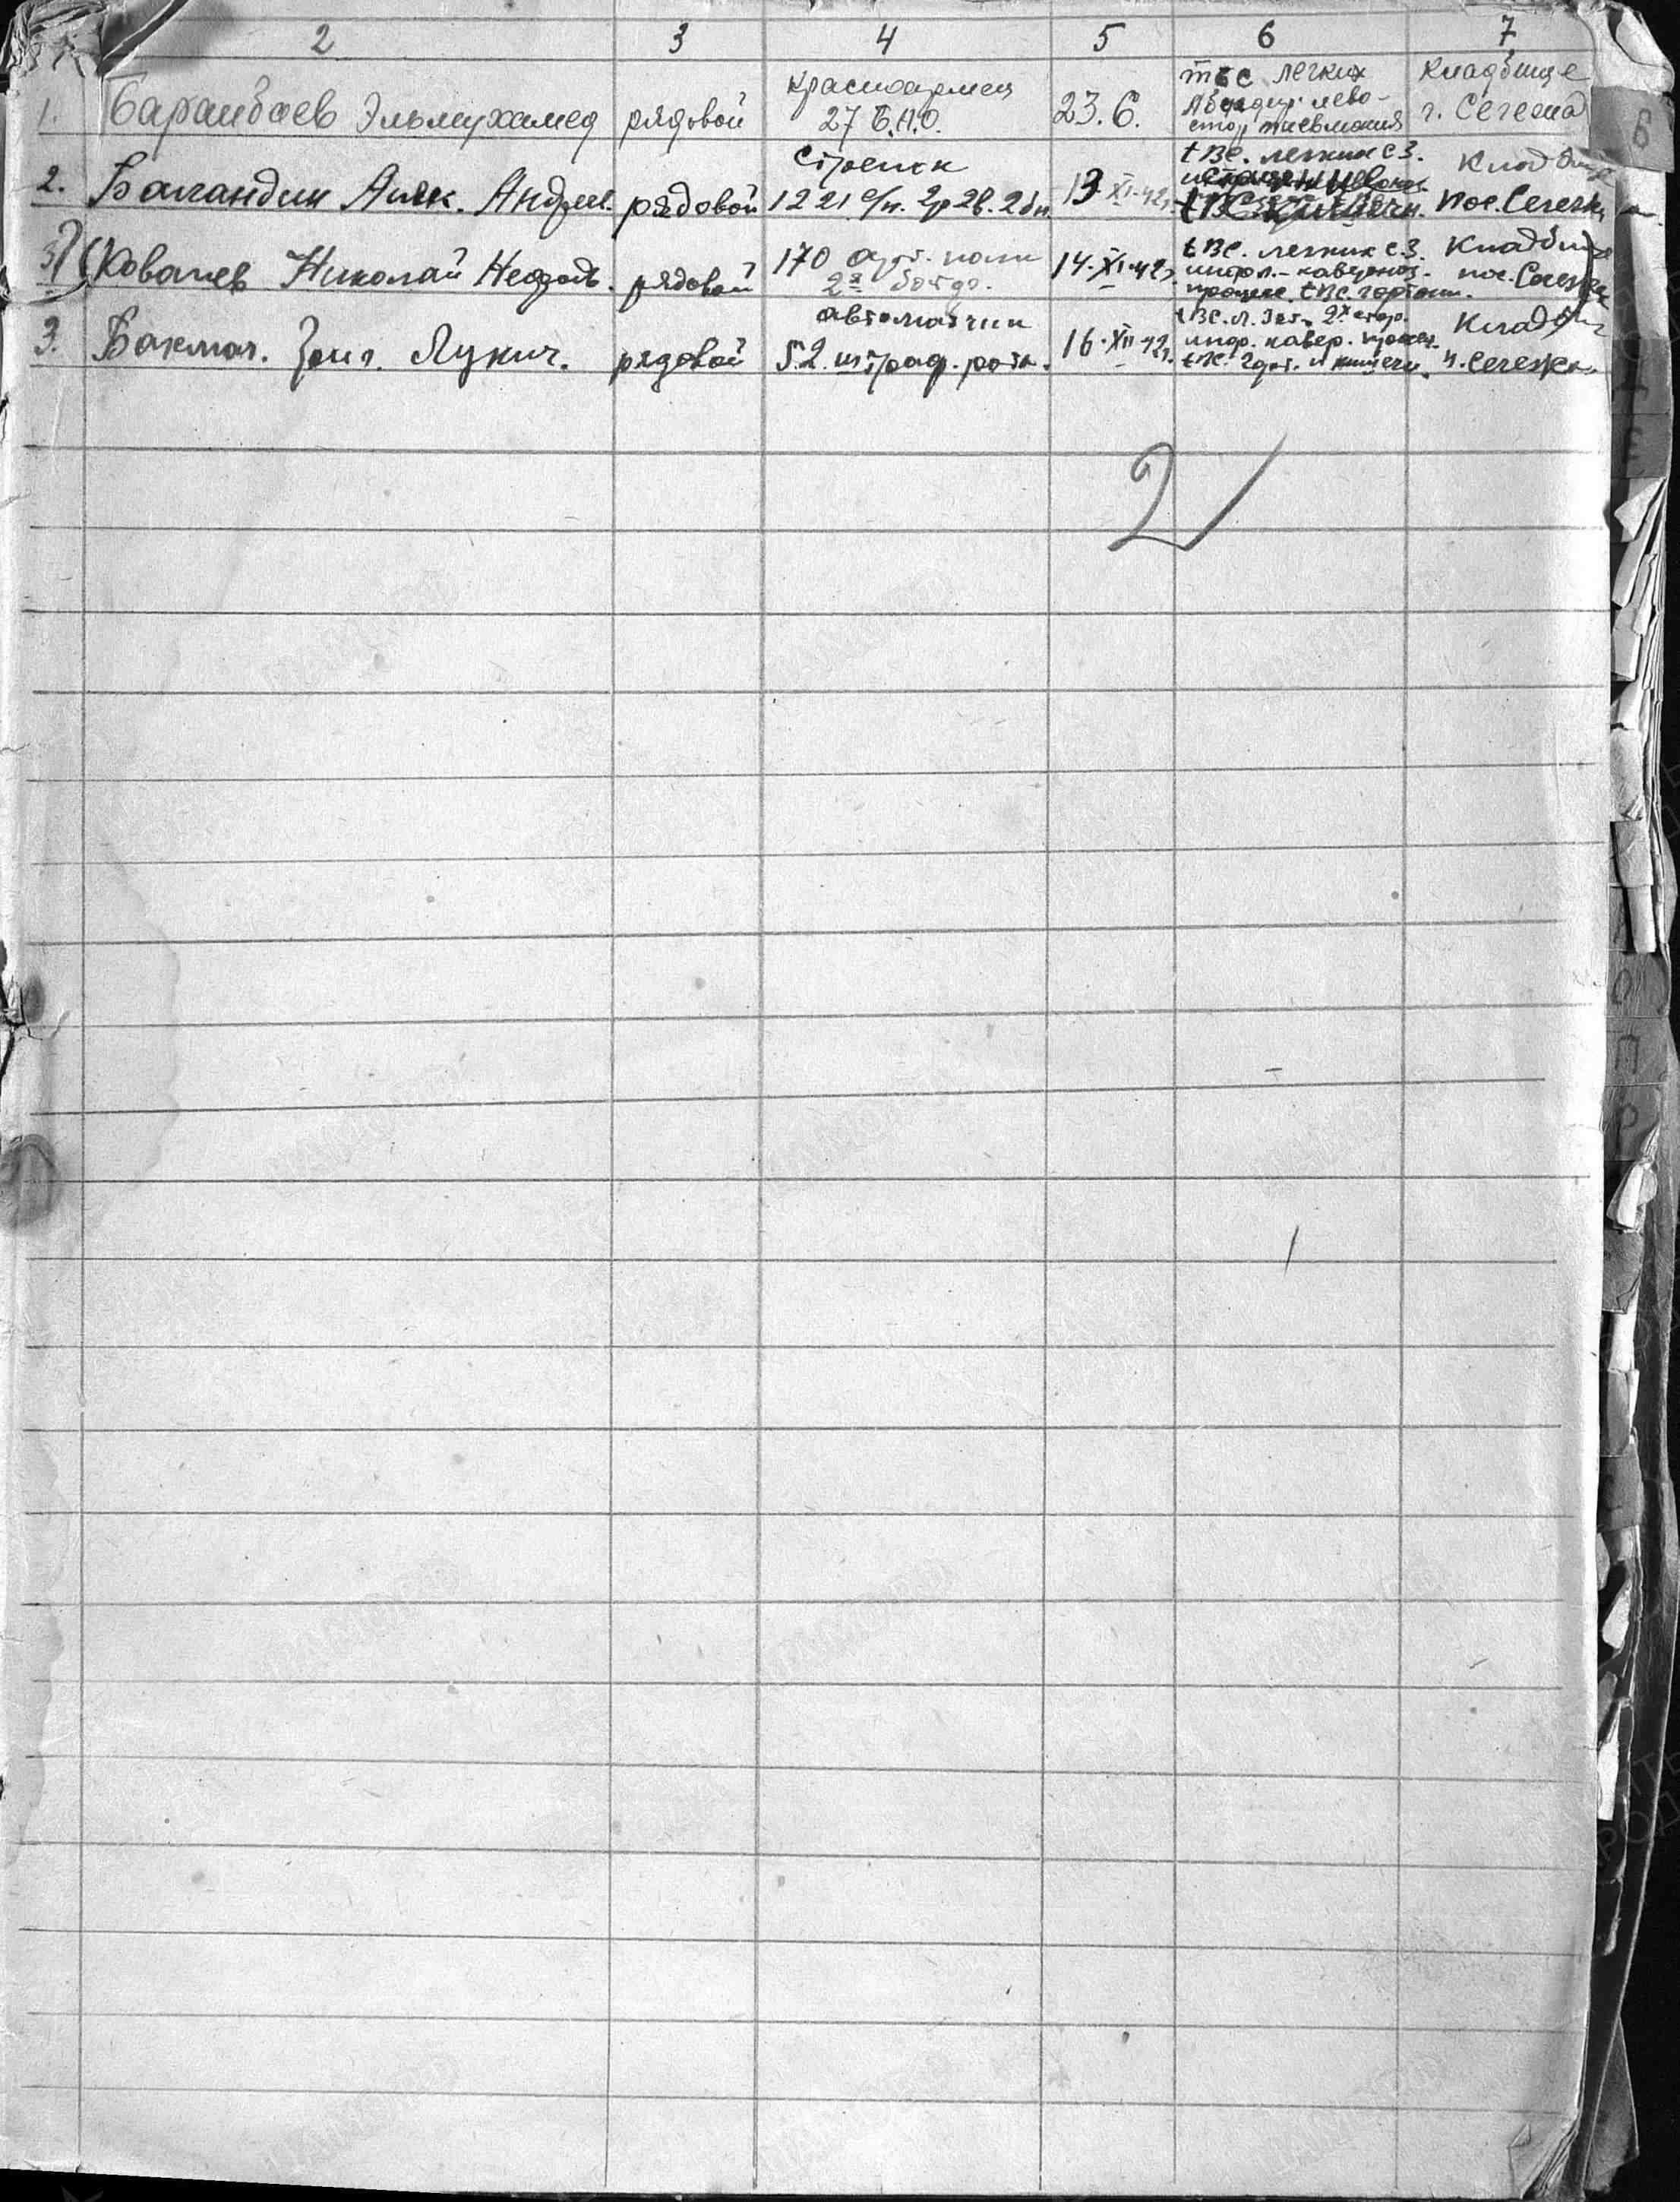 2 3 4 5 6 7
1. Баранбаев Эльмухамед рядовой красноармеец 27 Б.А.О. 23.6. твс легких Абсцедир. лево- стор. пневмония Кладбище г. Сегежа
2. Баландин Алек. Андреев. рядовой Стрелок 1221 с/п. 2р 2в. 2бн. 13.XI.42г. tвс. легких с 3. Кладбище пос. Сегежа
3 (Ковалев Николай рядовой 170 арт. полк 2я 14.XI.42г. tвс. легких с 3. инфл.-каверноз. процесс. tвс. гортани. Кладбище пос. Сегежа)
3. Бакмач. Григ. Лукич. рядовой автоматчик 52 штраф. рота. 16.XII.42г. tвс. л. 3ст. 2х стор. инф. кавер. процес. tвс. гор. и кишечн. Кладбищ п. Сегежа
2
Б
Е
О
П
Р